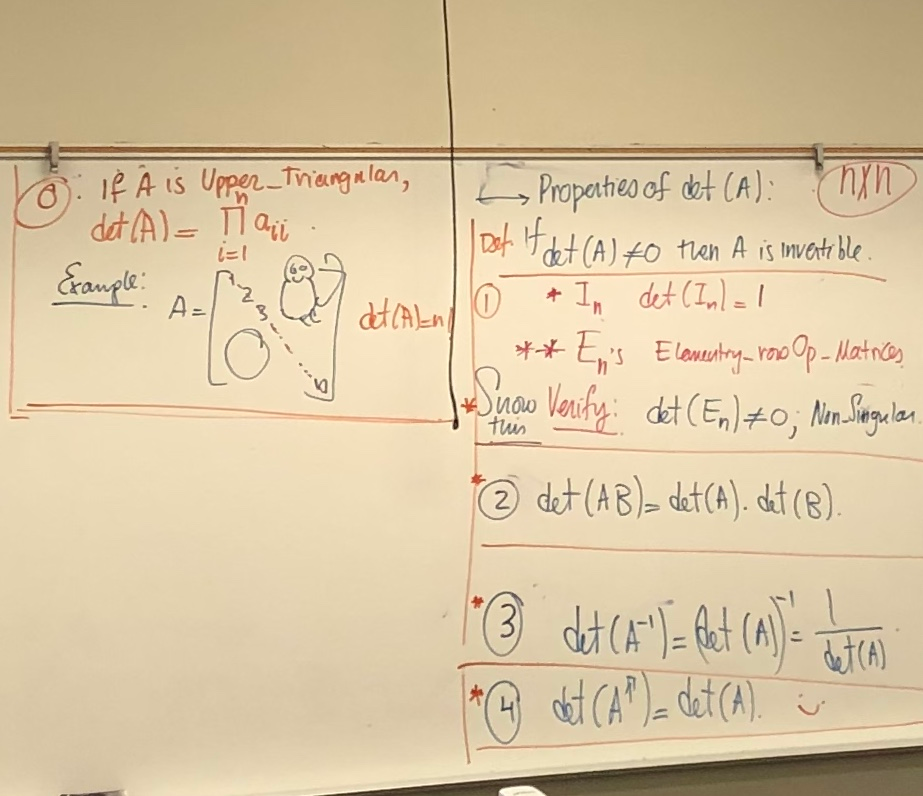 ⓪: If A is Upper_Triangular,
det(A) = ∏ aᵢᵢ .
n
i=1
Example:
A = [1 2 3 n] det(A)=n!
↳ Properties of det(A): n×n
Def. If det(A) ≠0 then A is invertible.
① * Iₙ det(Iₙ) = 1
** Eₙ's Elementry_row Op_Matrices
* Show this Verify: det(Eₙ) ≠0; Non_Singular.
* ② det(AB) = det(A). det(B).
* ③ det(A⁻¹) = (det(A))⁻¹ = 1/det(A)
* ④ det(Aᵀ) = det(A).